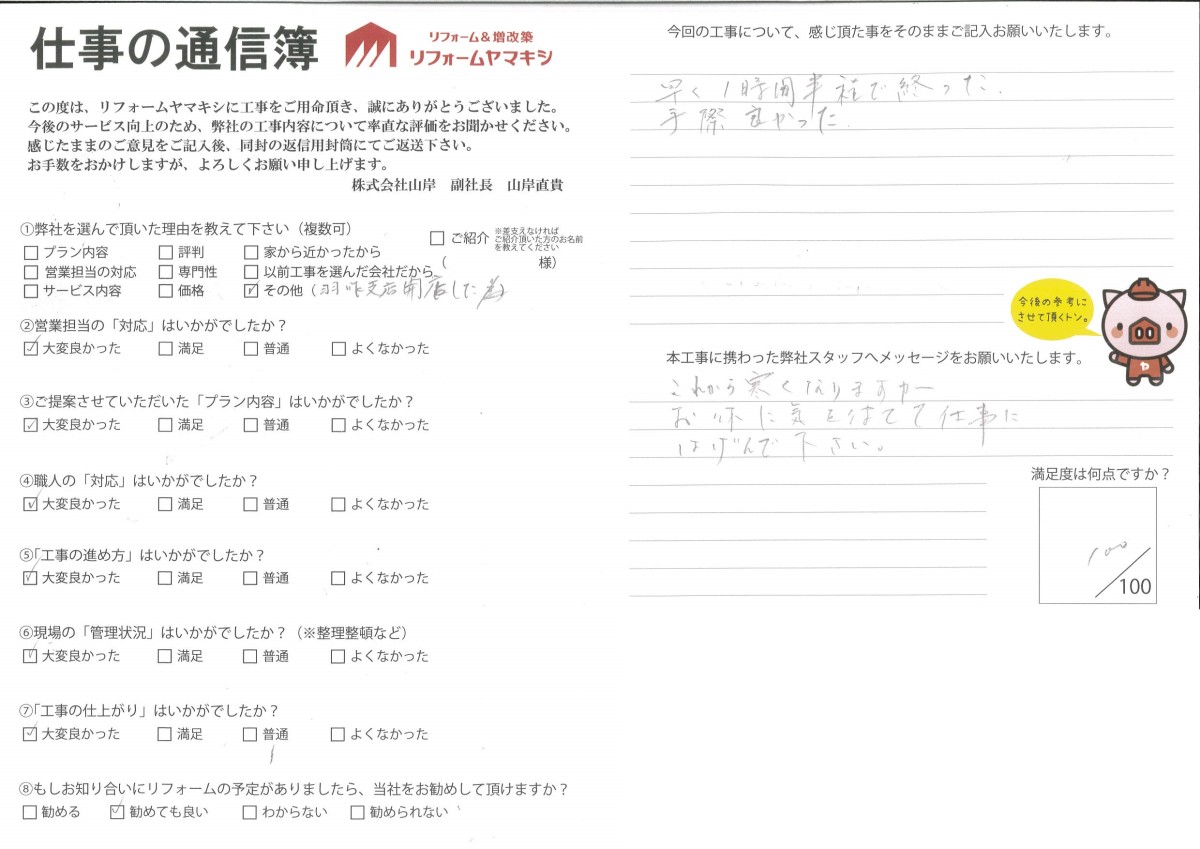 仕事の通信簿
リフォーム&増改築
リフォームヤマキシ
この度は、リフォームヤマキシに工事をご用命頂き、誠にありがとうございました。
今後のサービス向上のため、弊社の工事内容について率直な評価をお聞かせください。
感じたままのご意見をご記入後、同封の返信用封筒にてご返送下さい。
お手数をおかけしますが、よろしくお願い申し上げます。
株式会社山岸 副社長 山岸直貴
①弊社を選んで頂いた理由を教えて下さい（複数可）
□プラン内容 □評判 □家から近かったから
□営業担当の対応 □専門性 □以前工事を選んだ会社だから
□サービス内容 □価格 ☑その他（羽咋支店開店した為）
□ご紹介 ※差支えなければ
ご紹介頂いた方のお名前
を教えてください
（ 様）
②営業担当の「対応」はいかがでしたか？
☑大変良かった □満足 □普通 □よくなかった
③ご提案させていただいた「プラン内容」はいかがでしたか？
☑大変良かった □満足 □普通 □よくなかった
④職人の「対応」はいかがでしたか？
☑大変良かった □満足 □普通 □よくなかった
⑤「工事の進め方」はいかがでしたか？
☑大変良かった □満足 □普通 □よくなかった
⑥現場の「管理状況」はいかがでしたか？（※整理整頓など）
☑大変良かった □満足 □普通 □よくなかった
⑦「工事の仕上がり」はいかがでしたか？
☑大変良かった □満足 □普通 □よくなかった
⑧もしお知り合いにリフォームの予定がありましたら、当社をお勧めして頂けますか？
□勧める ☑勧めても良い □わからない □勧められない
今回の工事について、感じ頂た事をそのままご記入お願いいたします。
早く1時間半程で終った.
手際良かった.
今後の参考に
させて頂くトン。
ヤ
本工事に携わった弊社スタッフへメッセージをお願いいたします。
これから寒くなりますが
お体に気を付けて仕事に
はげんで下さい。
満足度は何点ですか？
100
/100